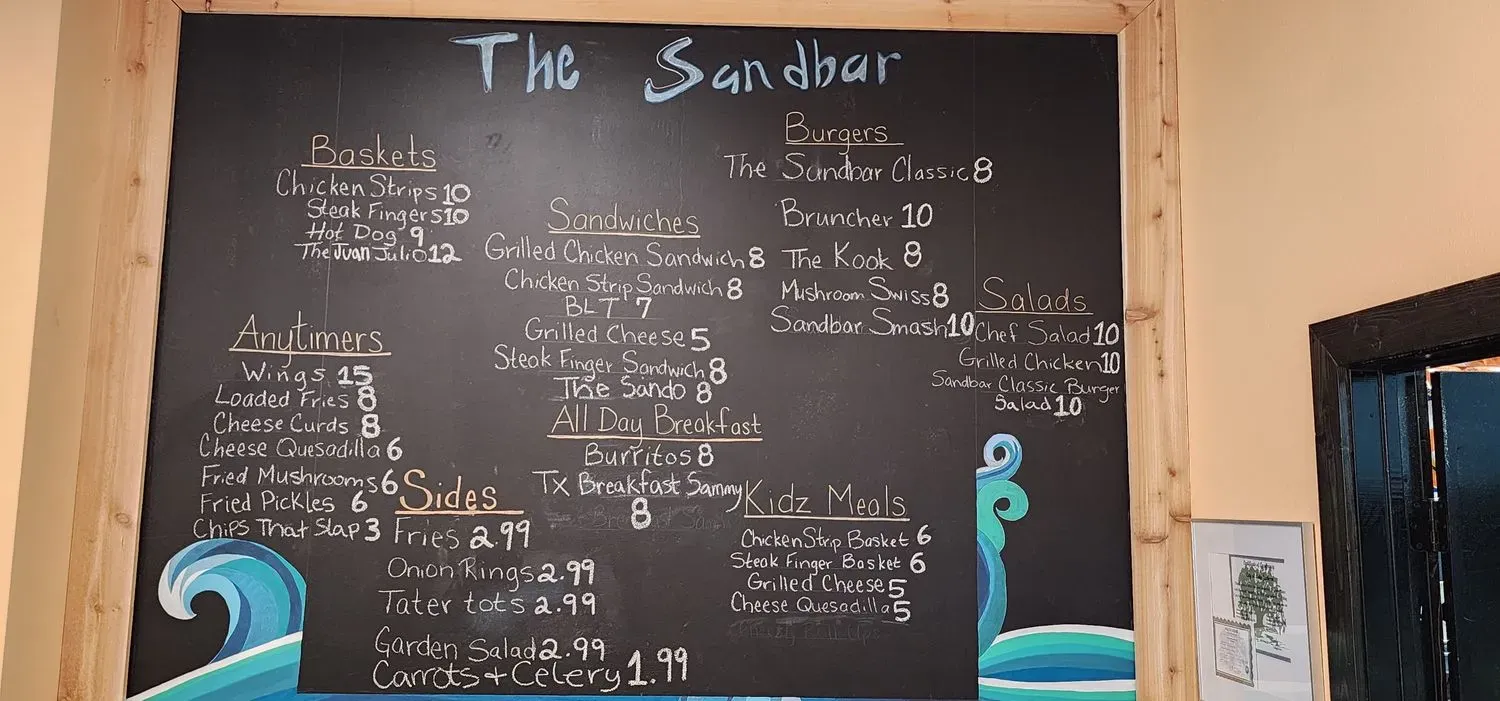 The Sandbar
Baskets
Chicken Strips 10
Steak Fingers 10
Hot Dog 9
The Juan Julio 12
Anytimers
Wings 15
Loaded Fries 8
Cheese Curds 8
Cheese Quesadilla 6
Fried Mushrooms 6
Fried Pickles 6
Chips That Slap 3
Sides
Fries 2.99
Onion Rings 2.99
Tater tots 2.99
Garden Salad 2.99
Carrots + Celery 1.99
Sandwiches
Grilled Chicken Sandwich 8
Chicken Strip Sandwich 8
BLT 7
Grilled Cheese 5
Steak Finger Sandwich 8
The Sando 8
All Day Breakfast
Burritos 8
Tx Breakfast Sammy
8
Burgers
The Sandbar Classic 8
Bruncher 10
The Kook 8
Mushroom Swiss 8
Sandbar Smash 10
Kidz Meals
Chicken Strip Basket 6
Steak Finger Basket 6
Grilled Cheese 5
Cheese Quesadilla 5
Salads
Chef Salad 10
Grilled Chicken 10
Sandbar Classic Burger
Salad 10